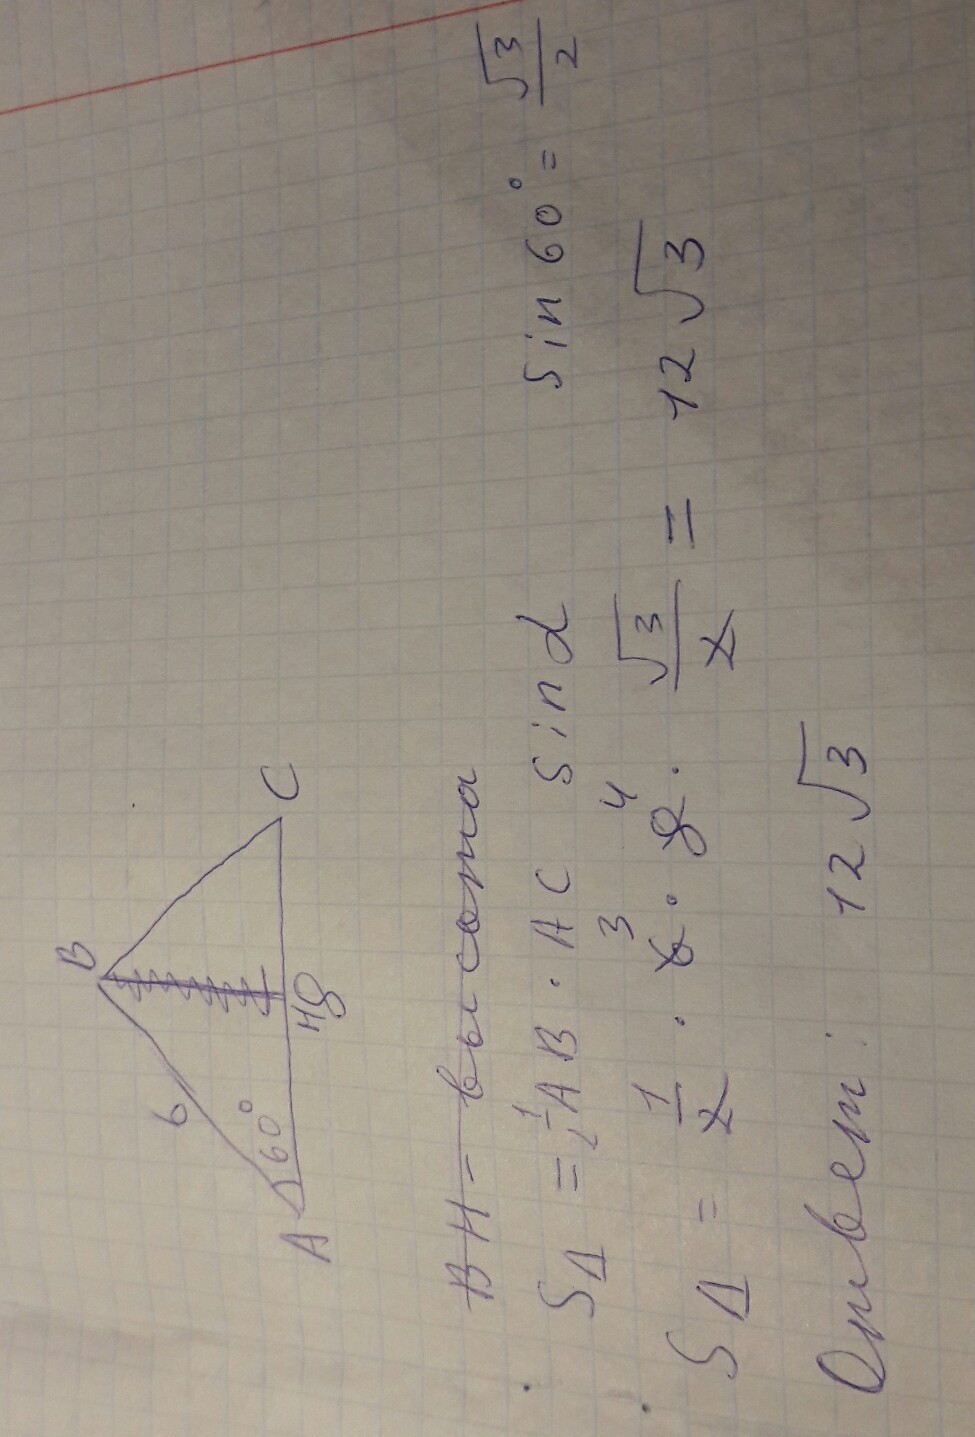 B
6
60°
A
H
8
C
BH - высота
S△ = 1/2 AB · AC sin α    sin 60° = √3/2
S△ = 1/2 · 6 3 · 8 4 · √3/2 = 12√3
Ответ: 12√3